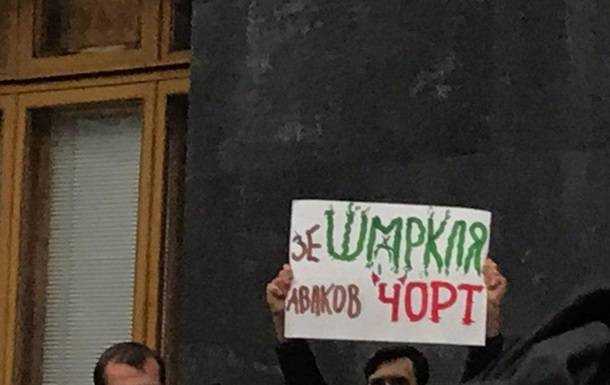 ЗЕ ШМАРКЛЯ
АВАКОВ ЧОРТ